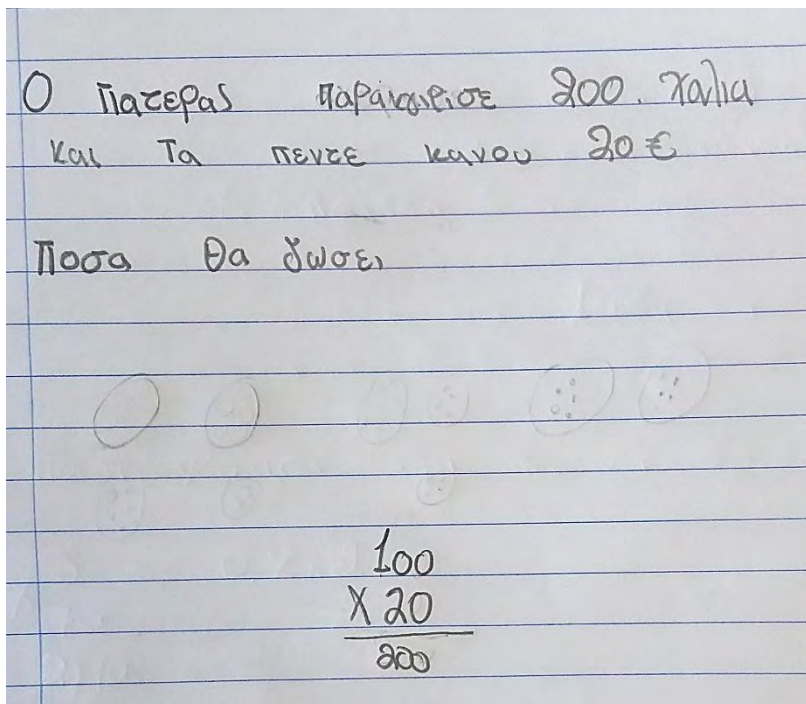 Ο Πατερας παράγγιρισε 200. χαλια
και Τα πεντε κανου 20 €
Ποσα θα δωσει
100
Χ 20
200